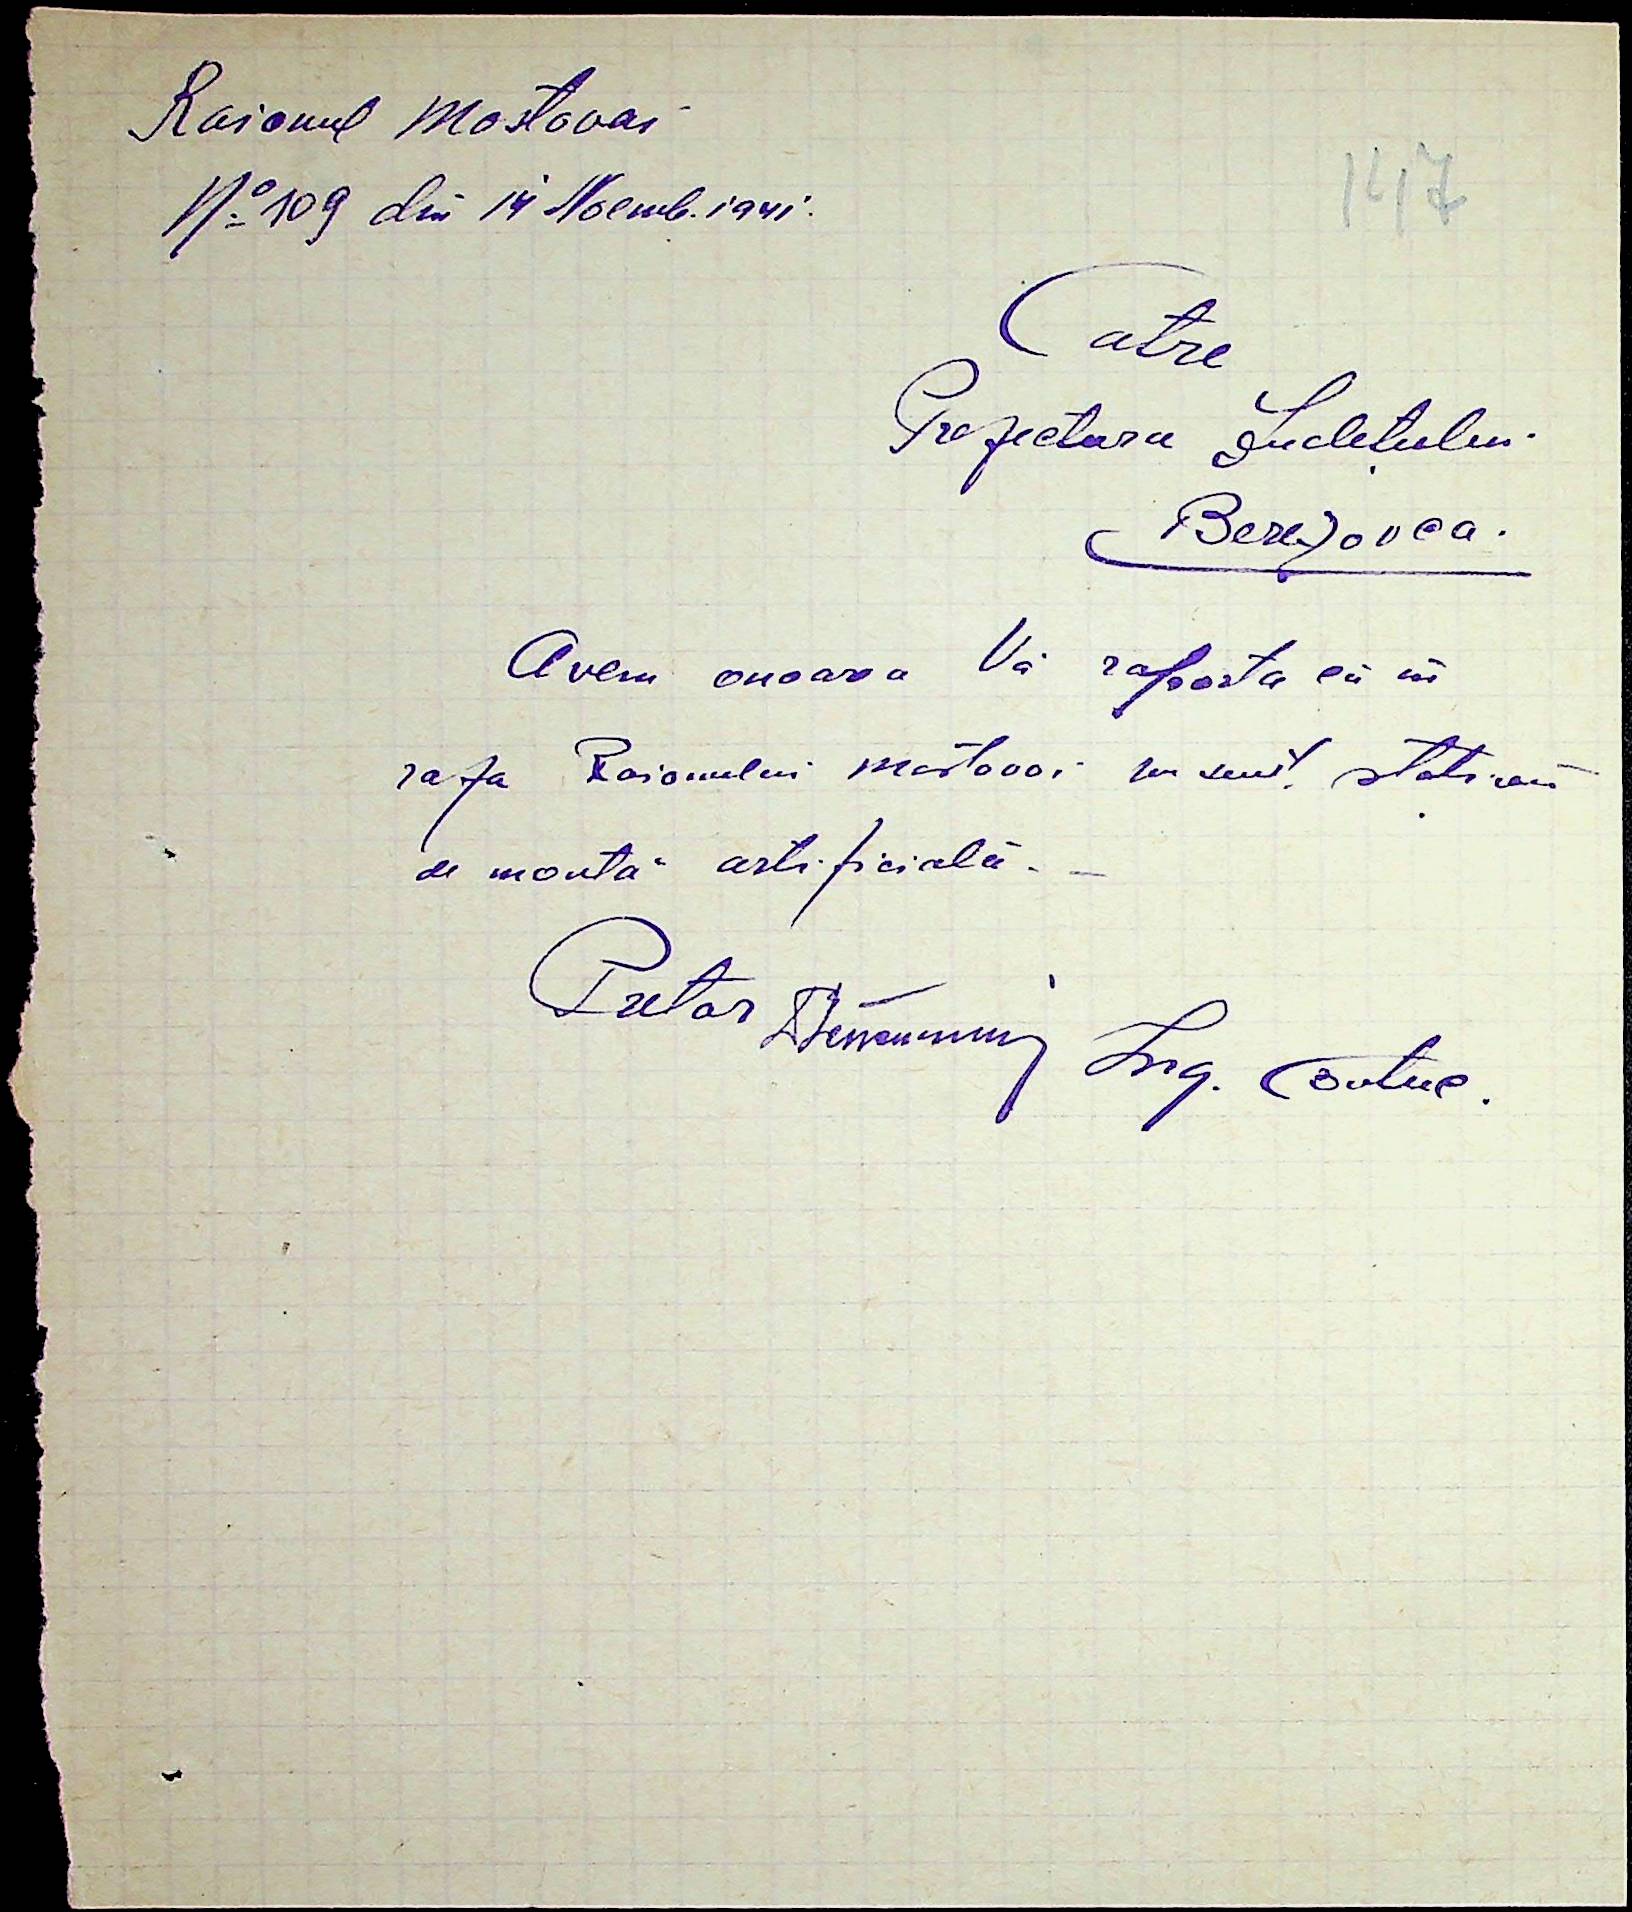 Raionul Mostovoi
147
Nº 109 din 14 Noemb. 1941.
Catre
Prefectura Judeţului
Berezovca.
Avem onoarea Vă raporta că în
raza Raionului Mostovoi nu sunt staţiuni
de montă artificială. –
Pretor
Ing.